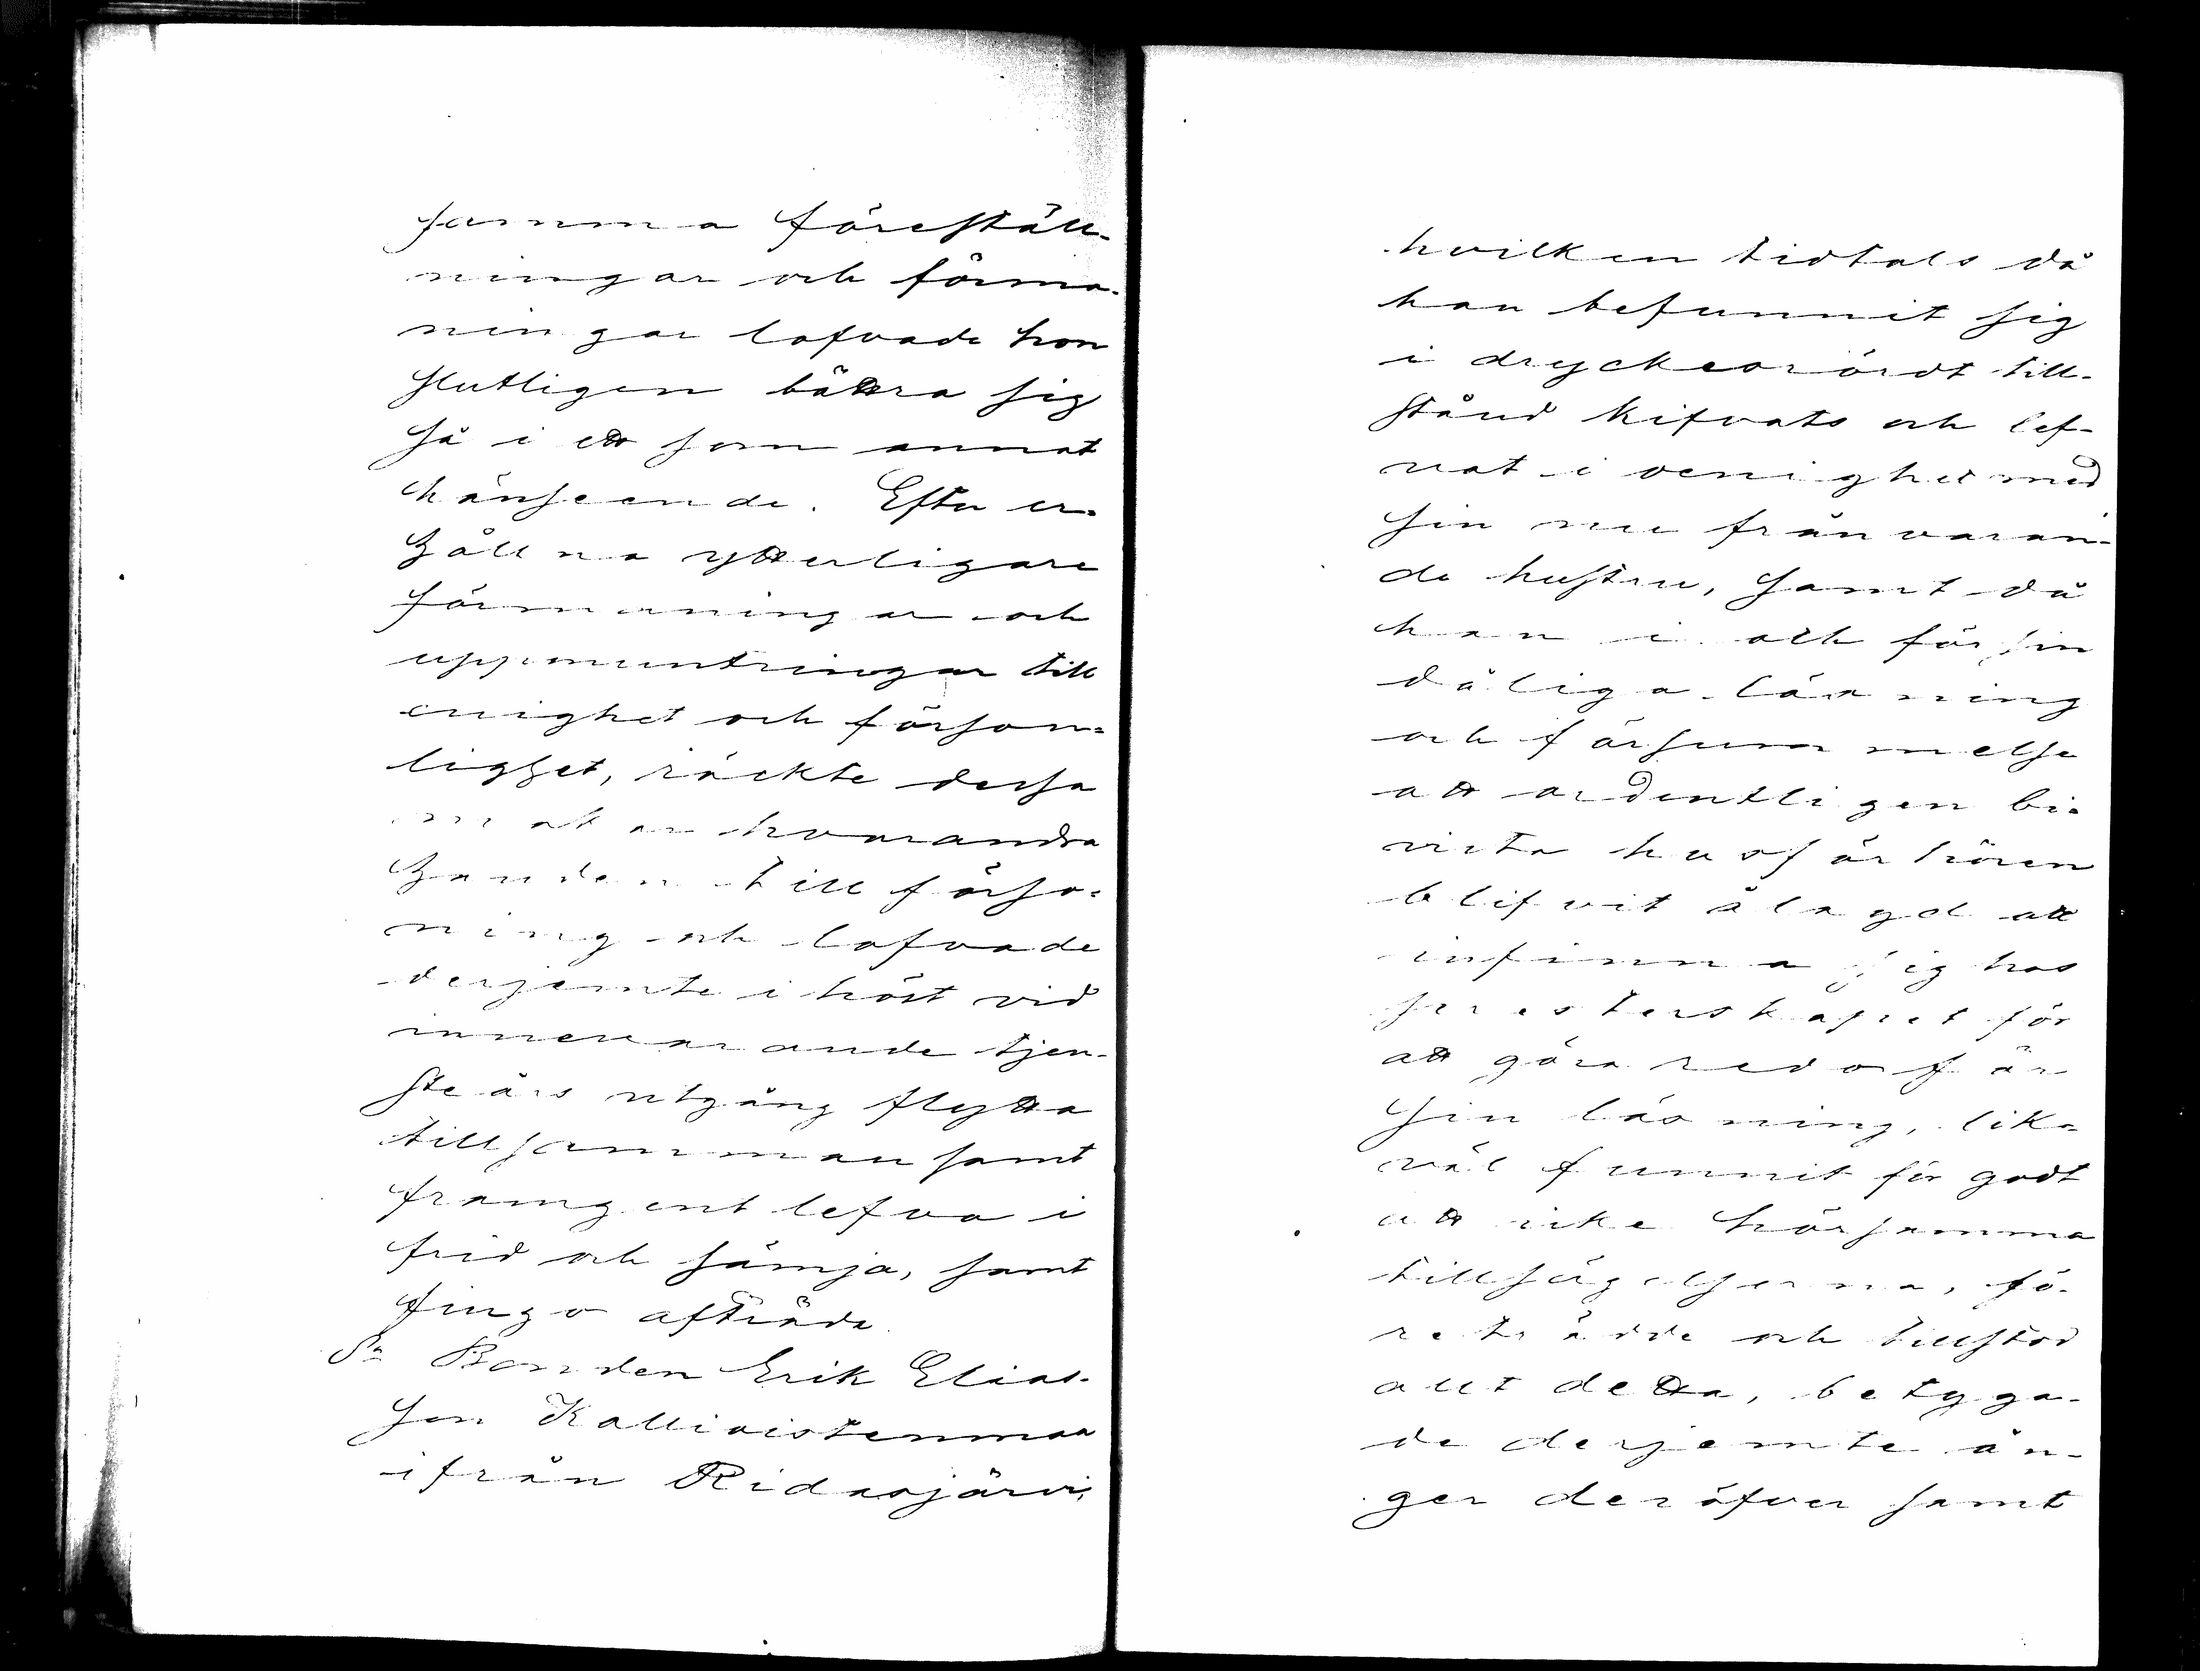 samma föreställ-
ningar och förma-
ningar lofvade hon
slutligen bättra sig
så i ett som annat
hänseende. Efter er-
hållna ytterligare
förmaningar och
uppmuntringar till
enighet och förson-
lighet, räckte dessa
makar hvarandra
handen till förso-
ning och lofvade
derjemte i höst vid
innevarande tjen-
steårs utgång flytta
tillsamman samt
framgent lefva i
frid och sämja, samt
fingo afträda.
Bonden Erik Elias-
son Kallioistenmaa
ifrån Ridasjärvi,
hvilken tidtals då
han befunnit sig
i dryckesrördt till-
stånd kifvats och lef-
vat i oenighet med
sin nu frånvaran-
de hustru, samt då
han i och för sin
dåliga läsning
och försummelse
att ordentligen bi-
vista husförhören
blifvit ålagd att
infinna sig hos
presterskapet för
att göra redo för
sin läsning, lik-
väl funnit för godt
att icke hörsamma
tillsägelserna, fö-
reträdde och tillstod
allt detta, betyga-
de derjemte ån-
ger deröfver samt